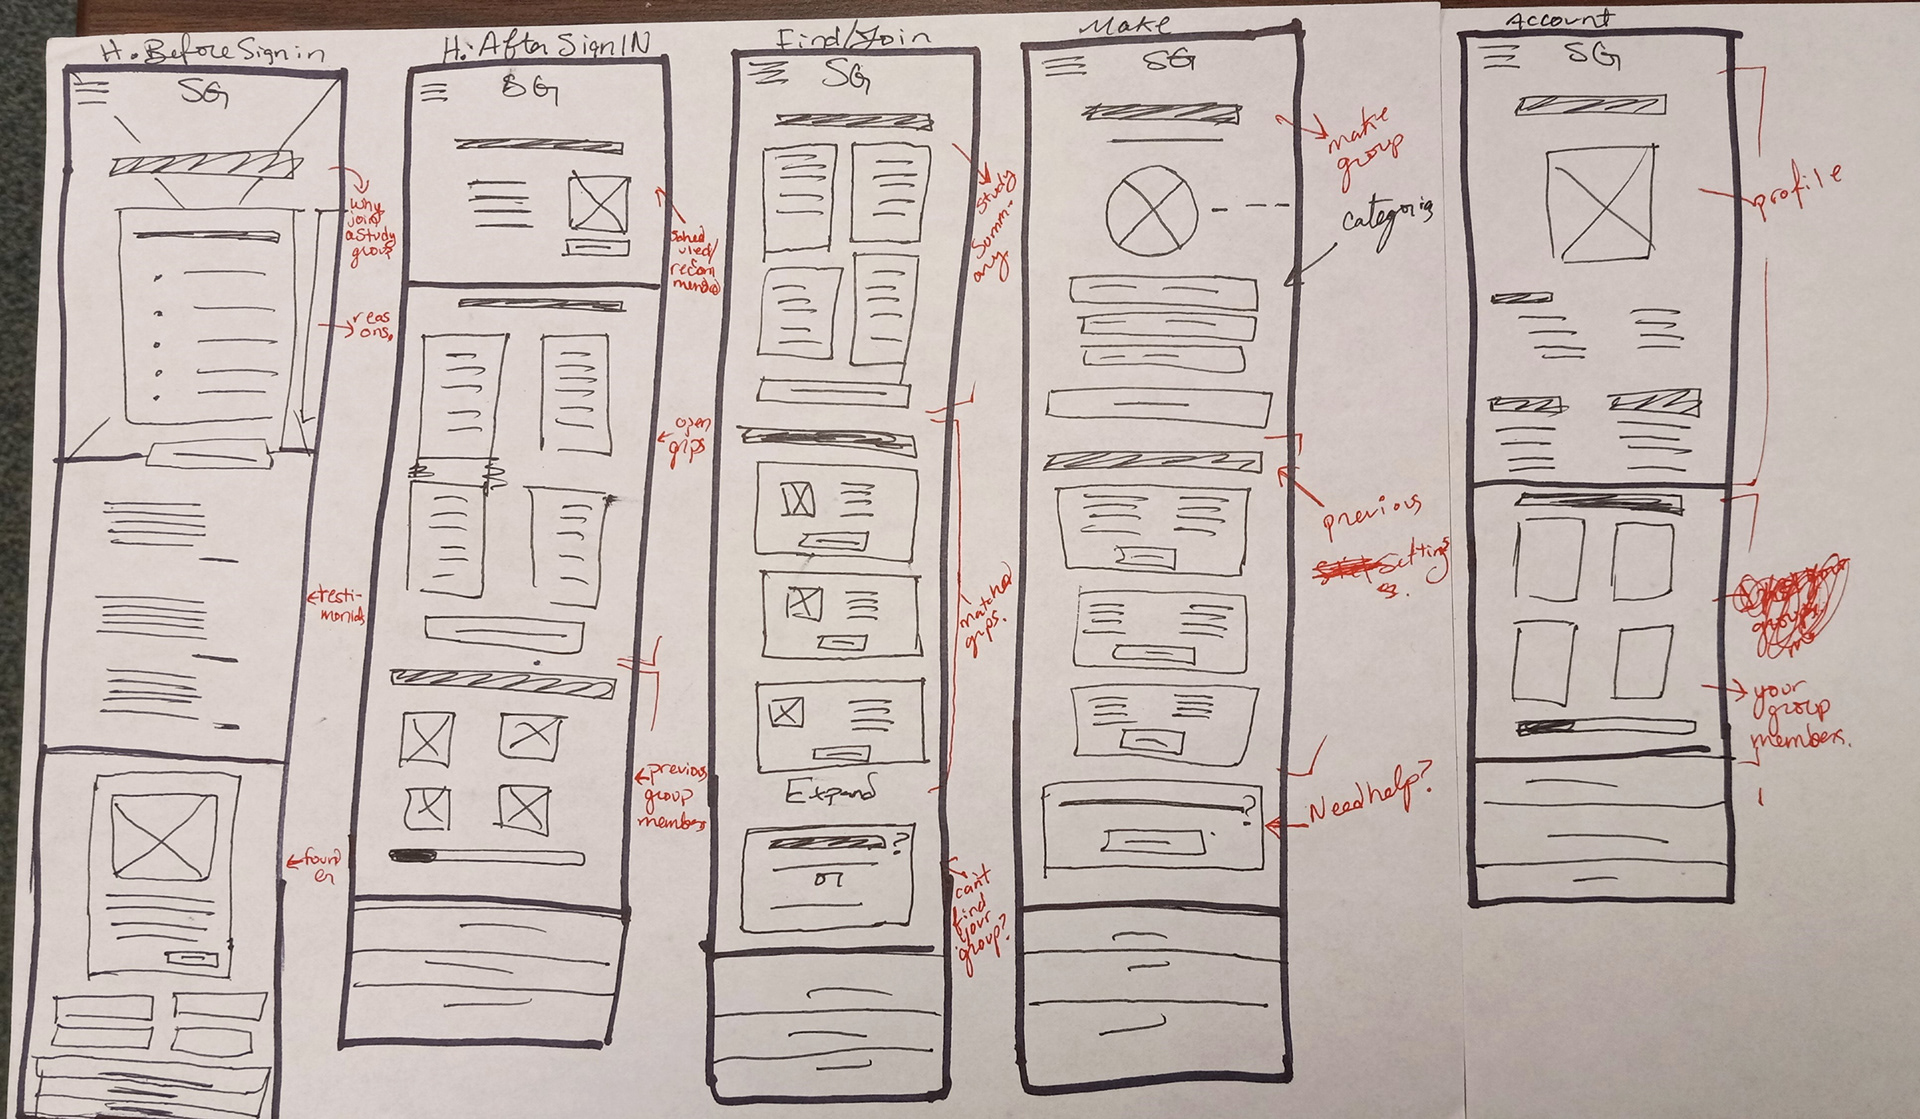 H. Before Sign in
SG
why
join
a study
group
reas
ons.
testi-
monials
found
er
H. After Sign IN
SG
sched
uled/
recom
mended
open
grps
previous
group
members
Find/Join
SG
Study
Summ-
ary.
matched
grps.
Expand
?
or
can't
find
your
group?
Make
SG
make
group
categoris
previous
settings
s.
?
Need help?
Account
SG
profile
groups
your
group
members.